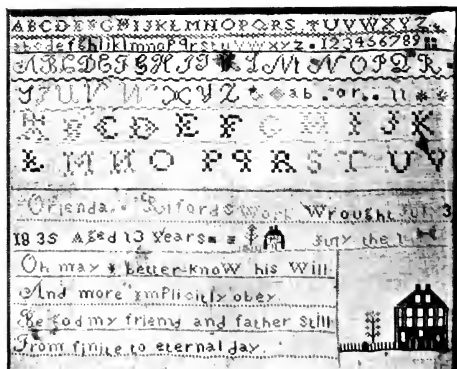 ABCDEFGHIJKLMNOPQRS TUVWXYZ.
abcdefghijklmnopqrstuvwxyz.123456789
ABCDEFGHIJ LMNOPQR
UVWXYZ ab.or..ll
CDEF HIJK
LMNOPQRSTUV
Orienda. Work Wrought
1835 Aged 13 Years the
Oh may I better know his Will
And more implicitly obey.
Be God my friend and father Still
From finite to eternal day.